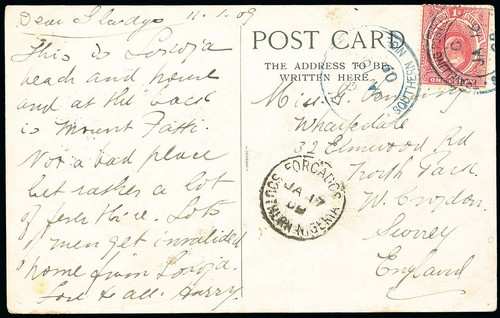 Dear Gladys 11.1.09
This is Lokoja
beach and home
and at the back
is Mount Patti.
Not a bad place
but rather a lot
of fever there. Lots
of men get invalided
home from Lokoja.
Love to all. Harry.
POST CARD
THE ADDRESS TO BE
WRITTEN HERE.
Miss G.
Wharfedale
32 Elmwood Rd
North Park
W. Croydon
Surrey
England
SOUTHERN
FORCADOS
JA 17
09
SOUTHERN NIGERIA